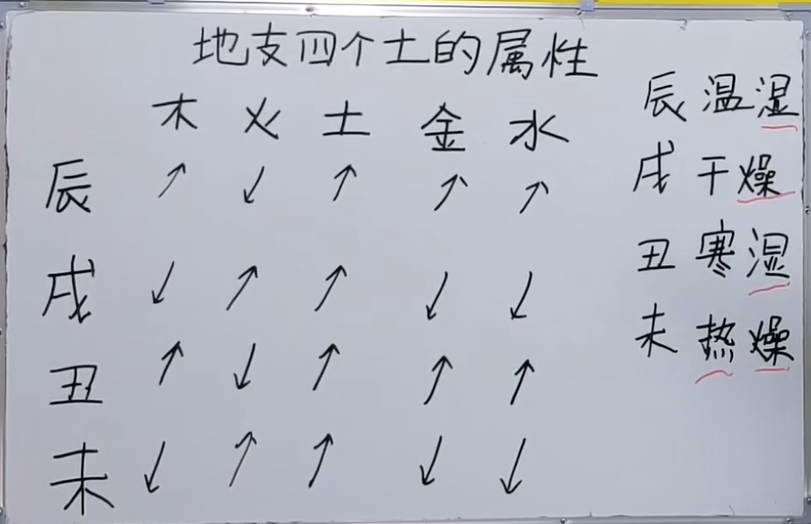 地支四个土的属性
木 火 土 金 水
辰 ↗ ↙ ↗ ↗ ↗
戌 ↙ ↗ ↗ ↙ ↙
丑 ↗ ↙ ↗ ↗ ↗
未 ↙ ↗ ↗ ↙ ↙
辰 温湿
戌 干燥
丑 寒湿
未 热燥